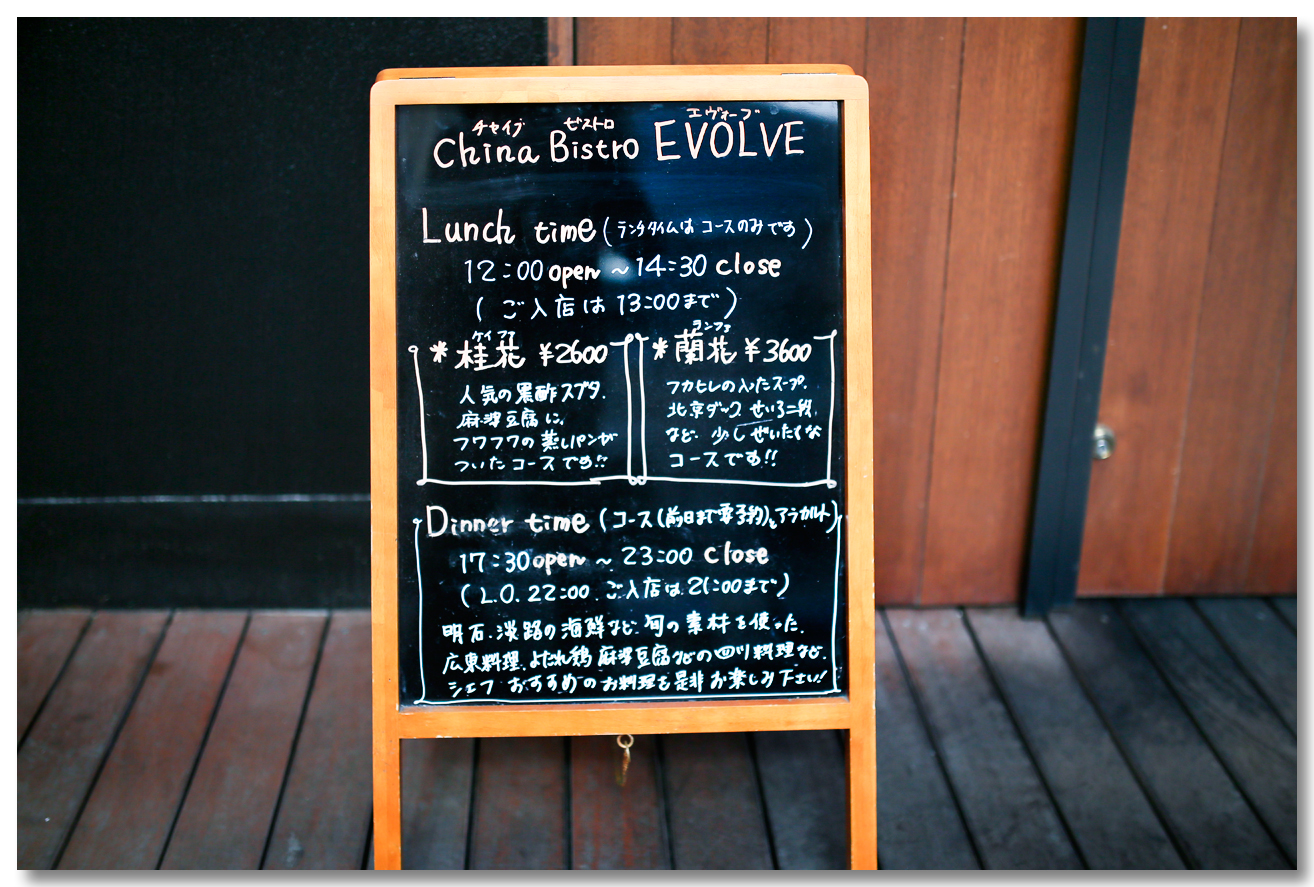 チャイナ ビストロ エヴォーブ
China Bistro EVOLVE
Lunch time (ランチタイムは コースのみです)
12:00 open ~ 14:30 close
(ご入店は 13:00まで)
ケイファ
*桂花 ¥2600
人気の黒酢スブタ.
麻婆豆腐に、
フワフワの蒸しパンが
ついたコースです!!
ランファ
*蘭花 ¥3600
フカヒレの入ったスープ.
北京ダック せいろ二段.
など. 少しぜいたくな
コースです!!
Dinner time (コース(前日まで要予約)とアラカルト)
17:30 open ~ 23:00 close
(L.O. 22:00 ご入店は 21:00まで)
明石.淡路の海鮮など.旬の素材を使った.
広東料理.よだれ鶏 麻婆豆腐などの四川料理など.
シェフ おすすめの お料理を是非 お楽しみ下さい!